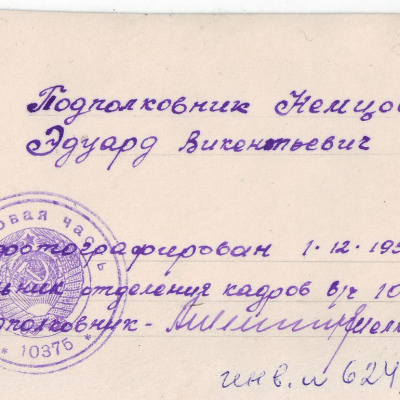 Подполковник Немцов
Эдуард Викентьевич
фотографирован 1.12.195
ник отделения кадров в/ч 10
дполковник-
овая часть
* 10375 *
инв. № 624